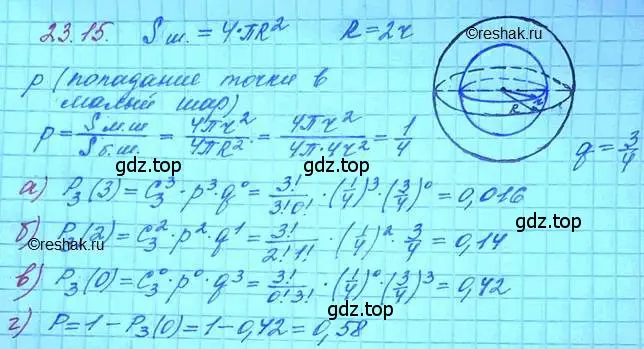 23.15. Sш. = 4·πR² R=2r
©reshak.ru
p (попадание точки в
малый шар)
p = Sм.ш / Sб.ш. = 4πr² / 4πR² = 4πr² / 4π·4r² = 1/4 q = 3/4
R r
gdz.top gdz.top
а) P₃(3) = C₃³·p³·q⁰ = 3!/3!0! · (1/4)³·(3/4)⁰ = 0,016
gdz.top
б) P₃(2) = C₃²·p²·q¹ = 3!/2!1! · (1/4)²·3/4 = 0,14
©reshak.ru
в) P₃(0) = C₃⁰·p⁰·q³ = 3!/0!3! · (1/4)⁰·(3/4)³ = 0,42
©reshak.ru
г) P = 1 - P₃(0) = 1 - 0,42 = 0,58
gdz.top
gdz.top